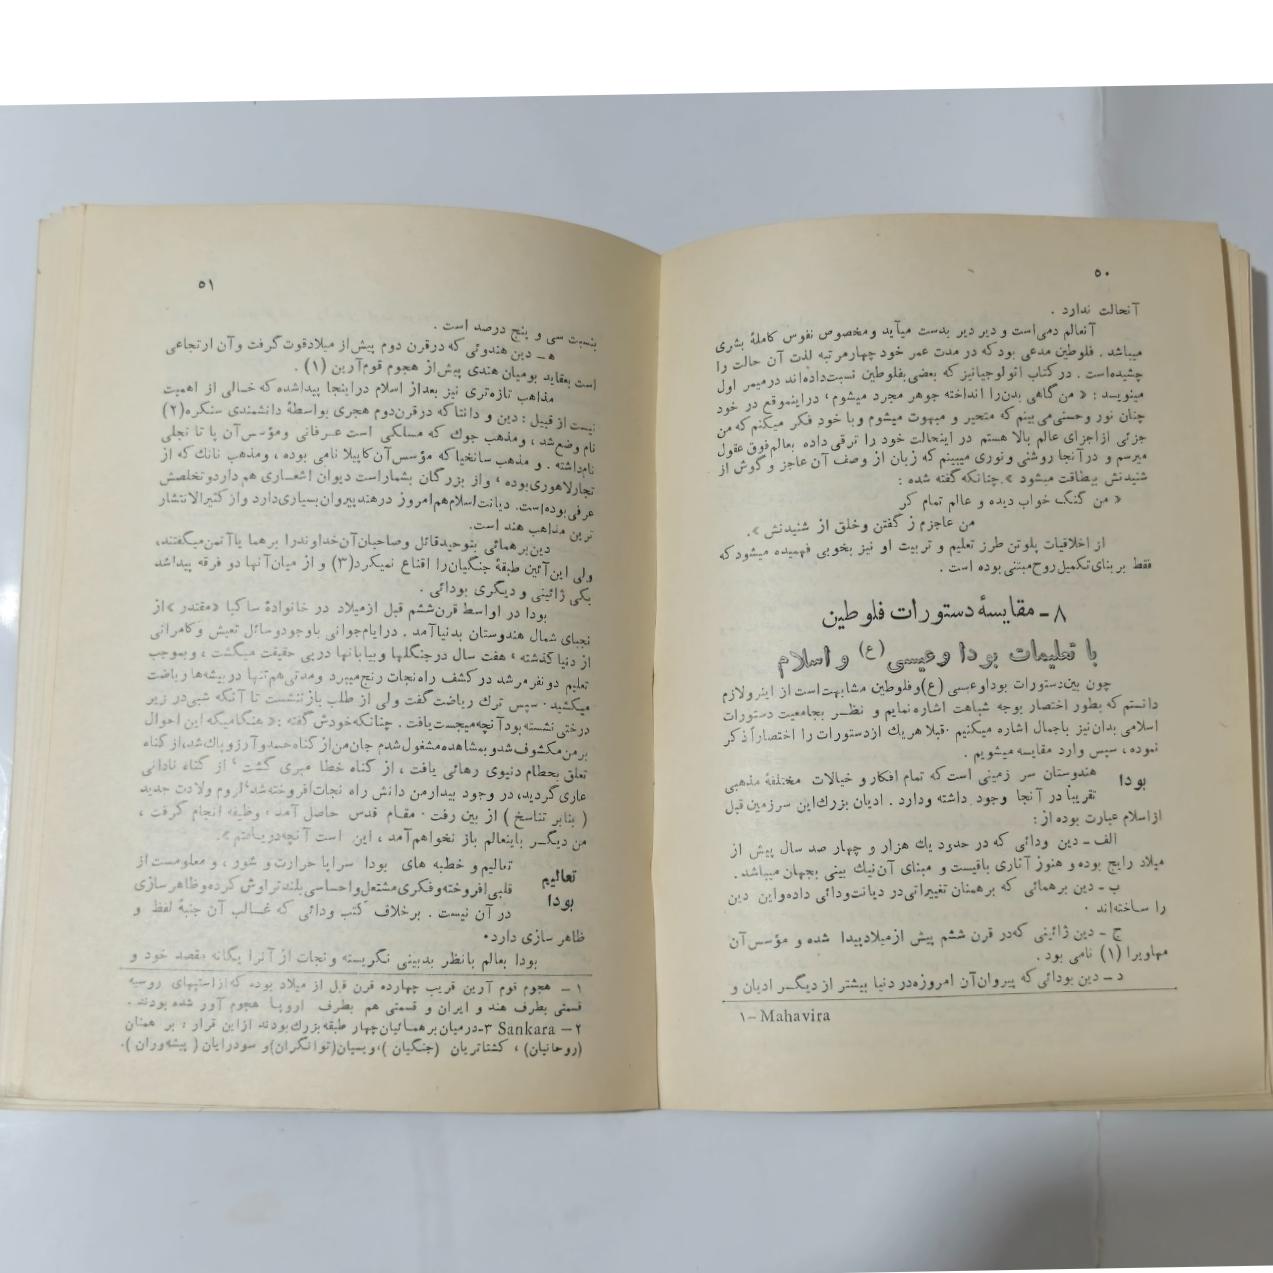 ۵۰
آنحالت ندارد .
آنعالم دمی‌است و دیر دیر بدست می‌آید و مخصوص نفوس کاملهٔ بشری
میباشد . فلوطین مدعی بود که در مدت عمر خود چهار مرتبه لذت آن حالت را
چشیده‌است . در کتاب اثولوجیا نیز که بعضی بفلوطین نسبت داده‌اند درمیمر اول
مینویسد : « من گاهی بدن‌را انداخته جوهر مجرد میشوم ، دراینموقع در خود
چنان نور وحسنی می‌بینم که متحیر و مبهوت میشوم و با خود فکر میکنم که من
جزئی ازاجزای عالم بالا هستم در اینحالت خود را ترقی داده بعالم فوق عقول
میرسم و درآنجا روشنی ونوری میبینم که زبان از وصف آن عاجز و گوش از
شنیدنش بیطاقت میشود ». چنانکه گفته شده :
« من گنگ خواب دیده و عالم تمام کر
من عاجزم ز گفتن وخلق از شنیدنش ».
از اخلاقیات پلوتن طرز تعلیم و تربیت او نیز بخوبی فهمیده میشود که
فقط بر بنای تکمیل روح مبتنی بوده است .
۸ - مقایسهٔ دستورات فلوطین
با تعلیمات بودا و عیسی (ع) و اسلام
چون بین دستورات بودا و عیسی (ع) و فلوطین مشابهت است از اینرو لازم
دانستم که بطور اختصار بوجه شباهت اشاره نمایم و نظر بجامعیت دستورات
اسلامی بدان نیز باجمال اشاره میکنیم . قبلا هریك ازدستورات را اختصاراً ذکر
نموده ، سپس وارد مقایسه میشویم .
بودا
هندوستان سر زمینی است که تمام افکار و خیالات مختلفهٔ مذهبی
تقریباً در آنجا وجود داشته ودارد . ادیان بزرك این سرزمین قبل
ازاسلام عبارت بوده از :
الف - دین ودائی که در حدود یك هزار و چهار صد سال پیش از
میلاد رایج بوده و هنوز آثاری باقیست و مبنای آن نیك بینی بجهان میباشد .
ب - دین برهمائی که برهمنان تغییراتی در دیانت ودائی داده و این دین
را ساخته‌اند .
ج - دین ژائینی که در قرن ششم پیش ازمیلاد پیدا شده و مؤسس آن
مهاویرا (۱) نامی بود .
د - دین بودائی که پیروان آن امروزه در دنیا بیشتر از دیگر ادیان و
۱- Mahavira
۵۱
بنسبت سی و پنج درصد است .
ه - دین هندوئی که درقرن دوم پیش از میلاد قوت گرفت و آن ارتجاعی
است بعقاید بومیان هندی پیش‌از هجوم قوم آرین (۱) .
مذاهب تازه‌تری نیز بعد از اسلام دراینجا پیدا شده که خالی از اهمیت
نیست از قبیل : دین و دانتا که درقرن دوم هجری بواسطهٔ دانشمندی سنکره (۲)
نام وضع شد ، و مذهب جوك که مسلکی است عرفانی و مؤسس آن پا تا نجلی
نام داشته . و مذهب سانخیا که مؤسس آن کاپیلا نامی بوده ، و مذهب نانك که از
تجار لاهوری بوده ، و از بزرگان بشمار است دیوان اشعاری هم دارد و تخلصش
عرفی بوده است . دیانت اسلام هم امروز در هند پیروان بسیاری دارد و از کثیرالانتشار
ترین مذاهب هند است.
دین برهمائی بتوحید قائل وصاحبان آن خداوند را برهما یا آتمن میگفتند،
ولی این آئین طبقهٔ جنگیان را اقناع نمیکرد (۳) و از میان آنها دو فرقه پیدا شد
یکی ژائینی و دیگری بودائی .
بودا در اواسط قرن ششم قبل از میلاد در خانوادهٔ ساکیا «مقتدر » از
نجبای شمال هندوستان بدنیا آمد . درایام جوانی باوجود وسائل تعیش و کامرانی
از دنیا گذشته ، هفت سال در جنگلها و بیابانها درپی حقیقت میگشت ، و بموجب
تعلیم دو نفر مرشد در کشف راه نجات رنج میبرد و مدتی هم تنها در بیشه‌ها ریاضت
میکشید . سپس ترك ریاضت گفت ولی از طلب باز ننشست تا آنکه شبی در زیر
درختی نشسته بود آنچه میجست یافت . چنانکه خودش گفته : « هنگامیکه این احوال
بر من مکشوف شد و بمشاهده مشغول شدم جان من از گناه حسد و آرزو پاك شد، از گناه
تعلق بحطام دنیوی رهائی یافت ، از گناه خطا مبری گشت ، از گناه نادانی
عاری گردید، در وجود بیدار من دانش راه نجات افروخته شد، لزوم ولادت جدید
( بنابر تناسخ ) از بین رفت . مقام قدس حاصل آمد . وظیفه انجام گرفت ،
من دیگر باینعالم باز نخواهم آمد ، این است آنچه دریافتم ».
تعالیم
بودا
تعالیم و خطبه های بودا سراپا حرارت و شور ، و معلومست از
قلبی افروخته و فکری مشتعل و احساسی بلند تراوش کرده و ظاهر سازی
در آن نیست . برخلاف کتب ودائی که غالب آن جنبهٔ لفظ و
ظاهر سازی دارد.
بودا بعالم با نظر بدبینی نگریسته و نجات از آنرا یگانه مقصد خود و
۱ - هجوم قوم آرین قریب چهارده قرن قبل از میلاد بوده که از استپهای روسیه
قسمتی بطرف هند و ایران و قسمتی هم بطرف اروپا هجوم آور شده بودند .
۲ - Sankara ۳- درمیان برهمائیان چهار طبقه بزرك بودند ازاین قرار : برهمنان
(روحانیان) ، کشاتریان (جنگیان )، ویسیان (توانگران) و سودرایان ( پیشه‌وران ).